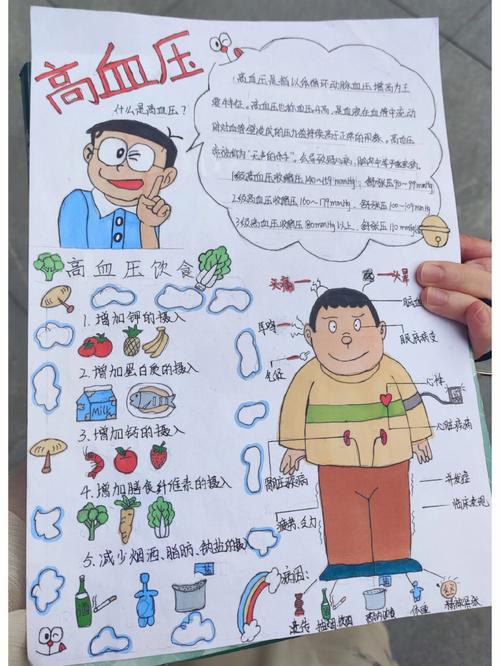 高血压
什么是高血压？
1.高血压是指以体循环动脉血压增高为主
要特征。高血压也称血压升高，是血液在血管中流动
时对血管壁造成的压力值持续高于正常的现象。高血压
被称为"无声的杀手"。会导致冠心病、脑卒中等严重疾病。
1级高血压收缩压140~159mmHg；舒张压90~99mmHg
2级高血压收缩压160~179mmHg、舒张压100~109mmHg
3级高血压收缩压80mmHg以上、舒张压110mmHg
高血压饮食
1.增加钾的摄入
2.增加蛋白质的摄入
Milk
3.增加钙的摄入
4.增加膳食纤维素的摄入
5.减少烟酒、脂肪、钠盐的摄入
头痛
头晕
耳鸣
心悸
眼底病变
心悸
心脏疾病
肾脏疾病
疲劳、乏力
并发症
临床表现
病因：
遗传
抽烟饮酒
体重
精神紧张